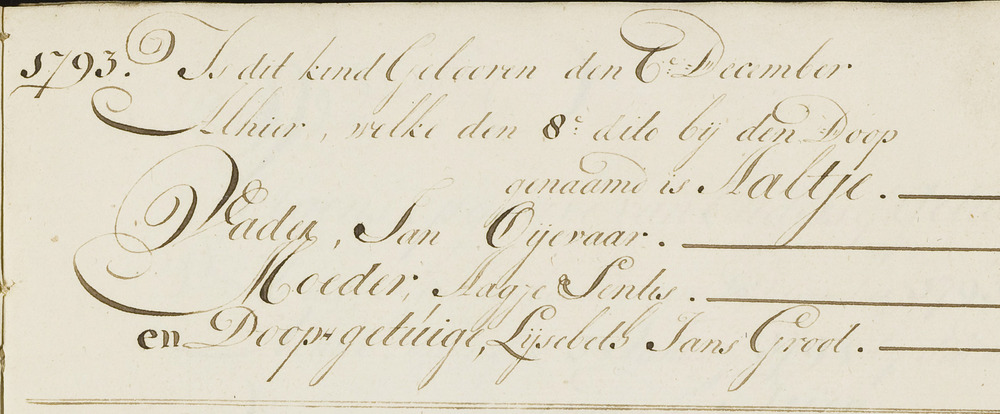 1793. Is dit kind Gebooren den 6e December
Alhier, welke den 8e dito bij den Doop
genaamd is Aaltje.
Vader, Jan Oijevaar.
Moeder, Aagje
en Doop-getuige, Lijsebeth Jans Groot.